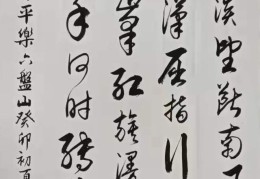 淡望斷南
漢屈指行
峯红旗漫
手何时缚
平樂六盤山癸卯初夏